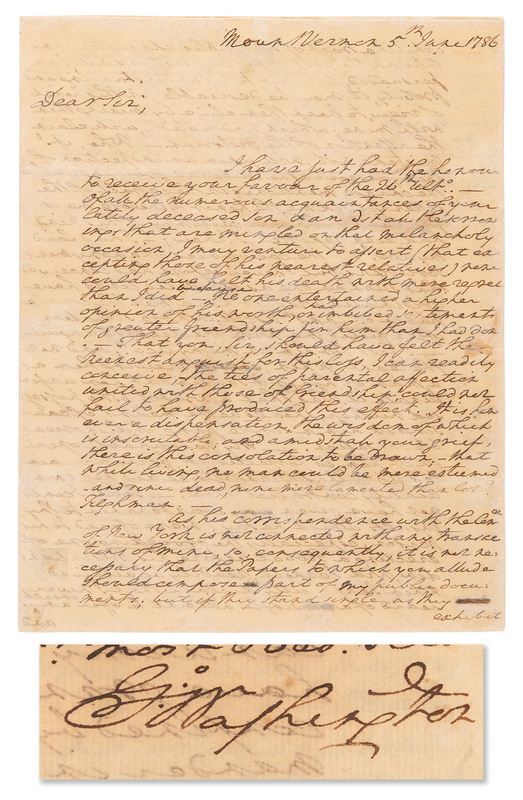 Mount Vernon 5th. June 1786
Dear Sir,
I have just had the honour
to receive your favour of the 26th. Ulto. —
Of all the numerous acquaintances of your
lately deceased son, & amidst all the sorrow
ings that are mingled on that melancholy
occasion, I may venture to assert, that (ex
cepting those of his nearest relatives) none
could have felt his death with more regret
than I did — No one entertained a higher
opinion of his worth, or imbibed sentiments
of greater friendship for him than I had don
e. — That you, Sir, should have felt the
keenest anguish for this loss, I can readily
conceive, the ties of parental affection
united with those of friendship could not
fail to have produced this effect. It is how
ever a dispensation, the wisdom of which
is inscrutable, and amidst all your grief,
there is this consolation to be drawn, — that
while living, no man could be more esteemed
- and since dead, none more lamented than Col.
Tilghman. —
As his correspondence with the Comee.
of New York is not connected with any transac
tions of mine, so, consequently, it is not ne
cessary that the Papers to which you allude
should compose part of my public docu
ments, but if they stand single as they
exhibit
most Obed.
Go: Washington